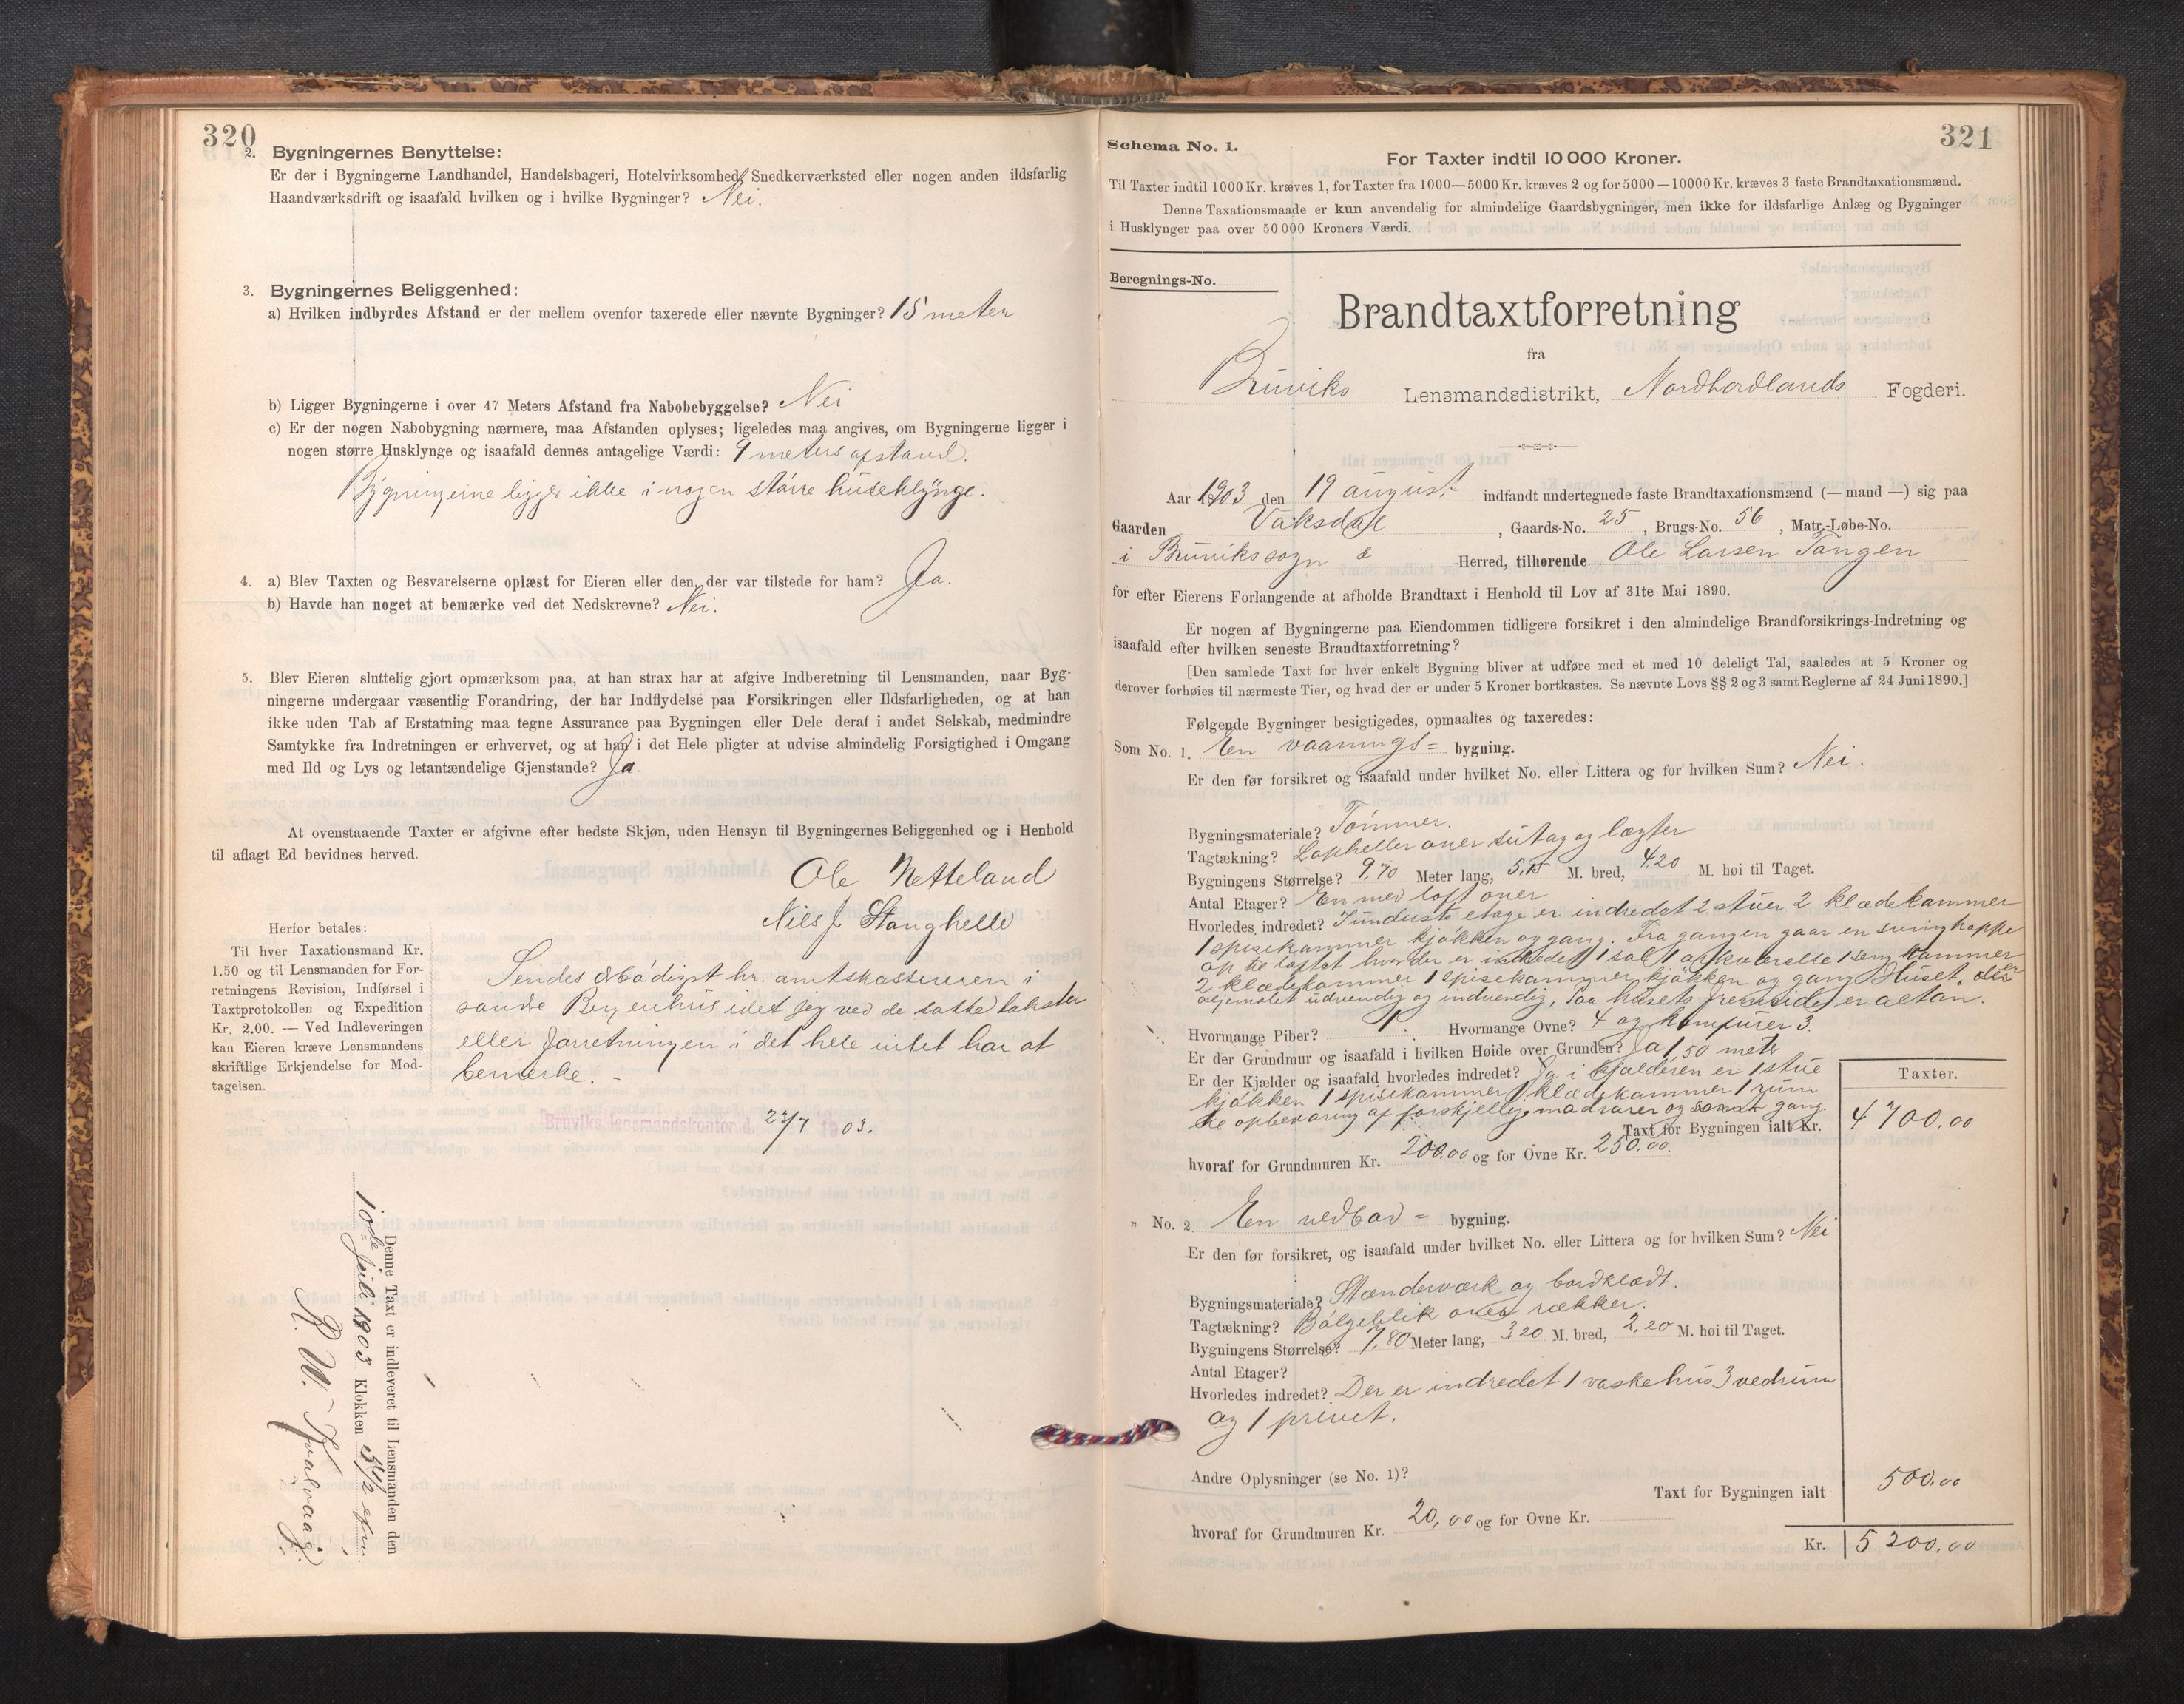 320
2. Bygningernes Benyttelse:
Er der i Bygningerne Landhandel, Handelsbageri, Hotelvirksomhed, Snedkerværksted eller nogen anden ildsfarlig
Haandværksdrift og isaafald hvilken og i hvilke Bygninger? Nei.
3. Bygningernes Beliggenhed:
a) Hvilken indbyrdes Afstand er der mellem ovenfor taxerede eller nævnte Bygninger? 15 meter
b) Ligger Bygningerne i over 47 Meters Afstand fra Nabobebyggelse? Nei
c) Er der nogen Nabobygning nærmere, maa Afstanden oplyses; ligeledes maa angives, om Bygningerne ligger i
nogen større Husklynge og isaafald dennes antagelige Værdi: 9 meters afstand.
Bygningerne ligger ikke i nogen større huseklynge.
4. a) Blev Taxten og Besvarelserne oplæst for Eieren eller den, der var tilstede for ham? Ja.
b) Havde han noget at bemærke ved det Nedskrevne? Nei.
5. Blev Eieren sluttelig gjort opmærksom paa, at han strax har at afgive Indberetning til Lensmanden, naar Byg-
ningerne undergaar væsentlig Forandring, der har Indflydelse paa Forsikringen eller Ildsfarligheden, og at han
ikke uden Tab af Erstatning maa tegne Assurance paa Bygningen eller Dele deraf i andet Selskab, medmindre
Samtykke fra Indretningen er erhvervet, og at han i det Hele pligter at udvise almindelig Forsigtighed i Omgang
med Ild og Lys og letantændelige Gjenstande? Ja.
At ovenstaaende Taxter er afgivne efter bedste Skjøn, uden Hensyn til Bygningernes Beliggenhed og i Henhold
til aflagt Ed bevidnes herved.
Ole Netteland
Nils J. Stanghelle
Herfor betales:
Til hver Taxationsmand Kr.
1.50 og til Lensmanden for For-
retningens Revision, Indførsel i
Taxtprotokollen og Expedition
Kr. 2.00. — Ved Indleveringen
kan Eieren kræve Lensmandens
skriftlige Erkjendelse for Mod-
tagelsen.
Sendes ærbødigst hr. amtskassereren i
søndre Bergenhus idet jeg ved de satte takster
eller forretningen i det hele intet har at
bemerke. –
Bruviks lensmandskontor d. 22/7 1903.
Denne Taxt er indleveret til Lensmanden den
10de juli 1903 Klokken 5 1/2 efm.
321
Schema No. 1.
For Taxter indtil 10 000 Kroner.
Til Taxter indtil 1000 Kr. kræves 1, for Taxter fra 1000—5000 Kr. kræves 2 og for 5000—10000 Kr. kræves 3 faste Brandtaxationsmænd.
Denne Taxationsmaade er kun anvendelig for almindelige Gaardsbygninger, men ikke for ildsfarlige Anlæg og Bygninger
i Husklynger paa over 50 000 Kroners Værdi.
Beregnings-No.
Brandtaxtforretning
fra
Bruviks Lensmandsdistrikt, Nordhordlands Fogderi.
Aar 1903 den 19 august indfandt undertegnede faste Brandtaxationsmænd (— mand —) sig paa
Gaarden Vaksdal, Gaards-No. 25, Brugs-No. 56, Matr.-Løbe-No.
i Bruvikssogn Herred, tilhørende Ole Larsen Tangen
for efter Eierens Forlangende at afholde Brandtaxt i Henhold til Lov af 31te Mai 1890.
Er nogen af Bygningerne paa Eiendommen tidligere forsikret i den almindelige Brandforsikrings-Indretning og
isaafald efter hvilken seneste Brandtaxtforretning?
[Den samlede Taxt for hver enkelt Bygning bliver at udføre med et med 10 deleligt Tal, saaledes at 5 Kroner og
derover forhøies til nærmeste Tier, og hvad der er under 5 Kroner bortkastes. Se nævnte Lovs §§ 2 og 3 samt Reglerne af 24 Juni 1890.]
Følgende Bygninger besigtigedes, opmaaltes og taxeredes:
Som No. 1. En vaanings= bygning.
Er den før forsikret og isaafald under hvilket No. eller Littera og for hvilken Sum? Nei.
Bygningsmateriale? Tømmer.
Tagtækning? Lapheller over sutag og lægter
Bygningens Størrelse? 9,70 Meter lang, 5,15 M. bred, 4,20 M. høi til Taget.
Antal Etager? En med loft over
Hvorledes indredet? I underste etage er indredet 2 stuer 2 klædekammer
1 spisekammer kjøkken og gang. Fra gangen gaar en svingtrappe
op til loftet hvor der er indredet 1 sal 1 opkvarelse 1 seng kammer
2 klædekammer 1 spisekammer kjøkken og gang Huset er
oljemalet udvendig og indvendig. Paa husets fremside er altan.
Hvormange Piber? 1. Hvormange Ovne? 4 og komfurer 3.
Er der Grundmur og isaafald i hvilken Høide over Grunden? Ja 1,50 meter
Er der Kjælder og isaafald hvorledes indredet? Ja i kjælderen er 1 stue
kjøkken 1 spisekammer 1 klædekammer 1 rum
til opbevaring af forskjellige madvarer og samt gang.
Taxter.
Taxt for Bygningen ialt Kr. 4700,00
hvoraf for Grundmuren Kr. 200.00 og for Ovne Kr. 250,00.
" No. 2. En vedbod = bygning.
Er den før forsikret, og isaafald under hvilket No. eller Littera og for hvilken Sum? Nei
Bygningsmateriale? Stenderværk og bordklædt.
Tagtækning? Bølgeblik over rækker.
Bygningens Størrelse? 7,80 Meter lang, 3,20 M. bred, 2,20 M. høi til Taget.
Antal Etager?
Hvorledes indredet? Der er indredet 1 vaskehus 3 vedrum
og 1 privet.
Andre Oplysninger (se No. 1)?
Taxt for Bygningen ialt 500.00
hvoraf for Grundmuren Kr. 20,00 og for Ovne Kr.
Kr. 5200,00